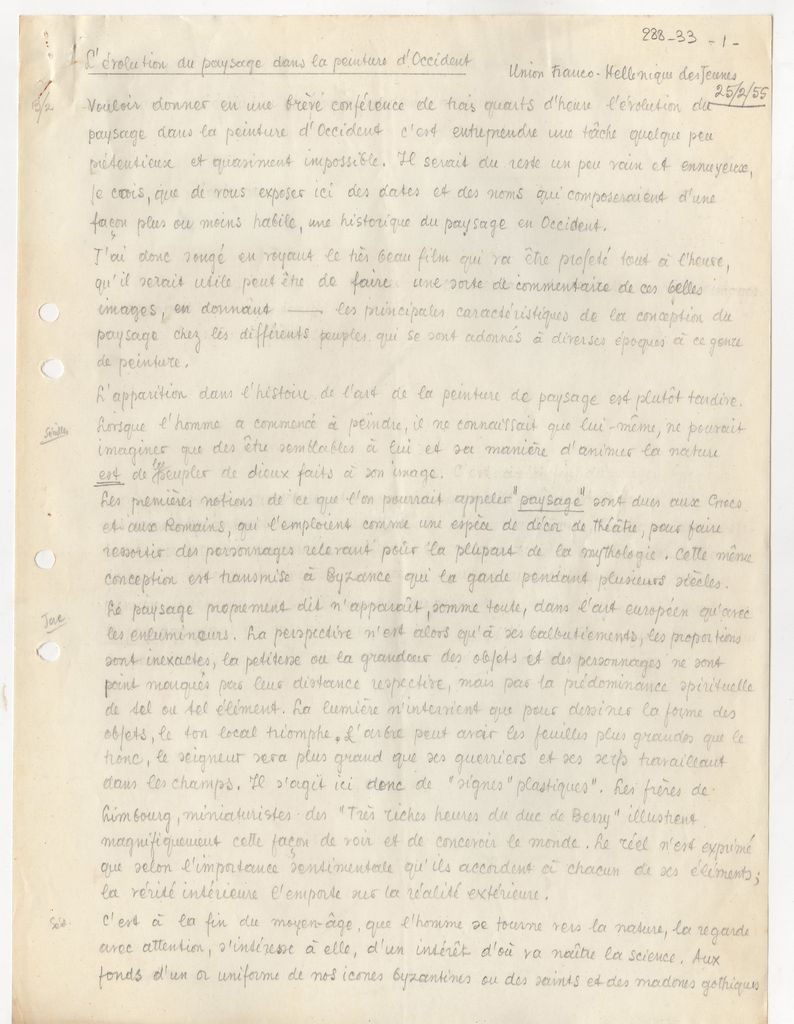 288-33 - 1 -
L'évolution du paysage dans la peinture d'Occident
Union Franco-Hellenique des Jeunes
25/2/55
Vouloir donner en une brève conférence de trois quarts d'heure l'évolution du
paysage dans la peinture d'Occident c'est entreprendre une tâche quelque peu
prétentieux et quasiment impossible. Il serait du reste un peu vain et ennuyeux,
je crois, que de vous exposer ici des dates et des noms qui composeraient d'une
façon plus ou moins habile, une historique du paysage en Occident.
J'ai donc songé en voyant le très beau film qui va être projeté tout à l'heure,
qu'il serait utile peut être de faire une sorte de commentaire de ces belles
images, en donnant — les principales caractéristiques de la conception du
paysage chez les différents peuples qui se sont adonnés à diverses époques à ce genre
de peinture.
L'apparition dans l'histoire de l'art de la peinture de paysage est plutôt tardive.
Lorsque l'homme a commencé à peindre, il ne connaissait que lui-même, ne pouvait
imaginer que des être semblables à lui et sa manière d'animer la nature
est de la peupler de dieux faits à son image.
Les premières notions de ce que l'on pourrait appeler "paysage" sont dues aux Grecs
et aux Romains, qui l'emploient comme une espèce de décor de théâtre, pour faire
ressortir des personnages relevant pour la plupart de la mythologie. Cette même
conception est transmise à Byzance qui la garde pendant plusieurs siècles.
Le paysage proprement dit n'apparaît, somme toute, dans l'art européen qu'avec
les enlumineurs. La perspective n'est alors qu'à ses balbutiements, les proportions
sont inexactes, la petitesse ou la grandeur des objets et des personnages ne sont
point marqués par leur distance respective, mais par la prédominance spirituelle
de tel ou tel élément. La lumière n'intervient que pour dessiner la forme des
objets, le ton local triomphe. L'arbre peut avoir les feuilles plus grandes que le
tronc, le seigneur sera plus grand que ses guerriers et ses serfs travaillant
dans les champs. Il s'agit ici donc de "signes" plastiques". Les frères de
Limbourg, miniaturistes des "Très riches heures du duc de Berry" illustrent
magnifiquement cette façon de voir et de concevoir le monde. Le réel n'est exprimé
que selon l'importance sentimentale qu'ils accordent à chacun de ses éléments;
la vérité intérieure l'emporte sur la réalité extérieure.
C'est à la fin du moyen-âge, que l'homme se tourne vers la nature, la regarde
avec attention, s'intéresse à elle, d'un intérêt d'où va naître la science. Aux
fonds d'un or uniforme de nos icones byzantines ou des saints et des madones gothiques